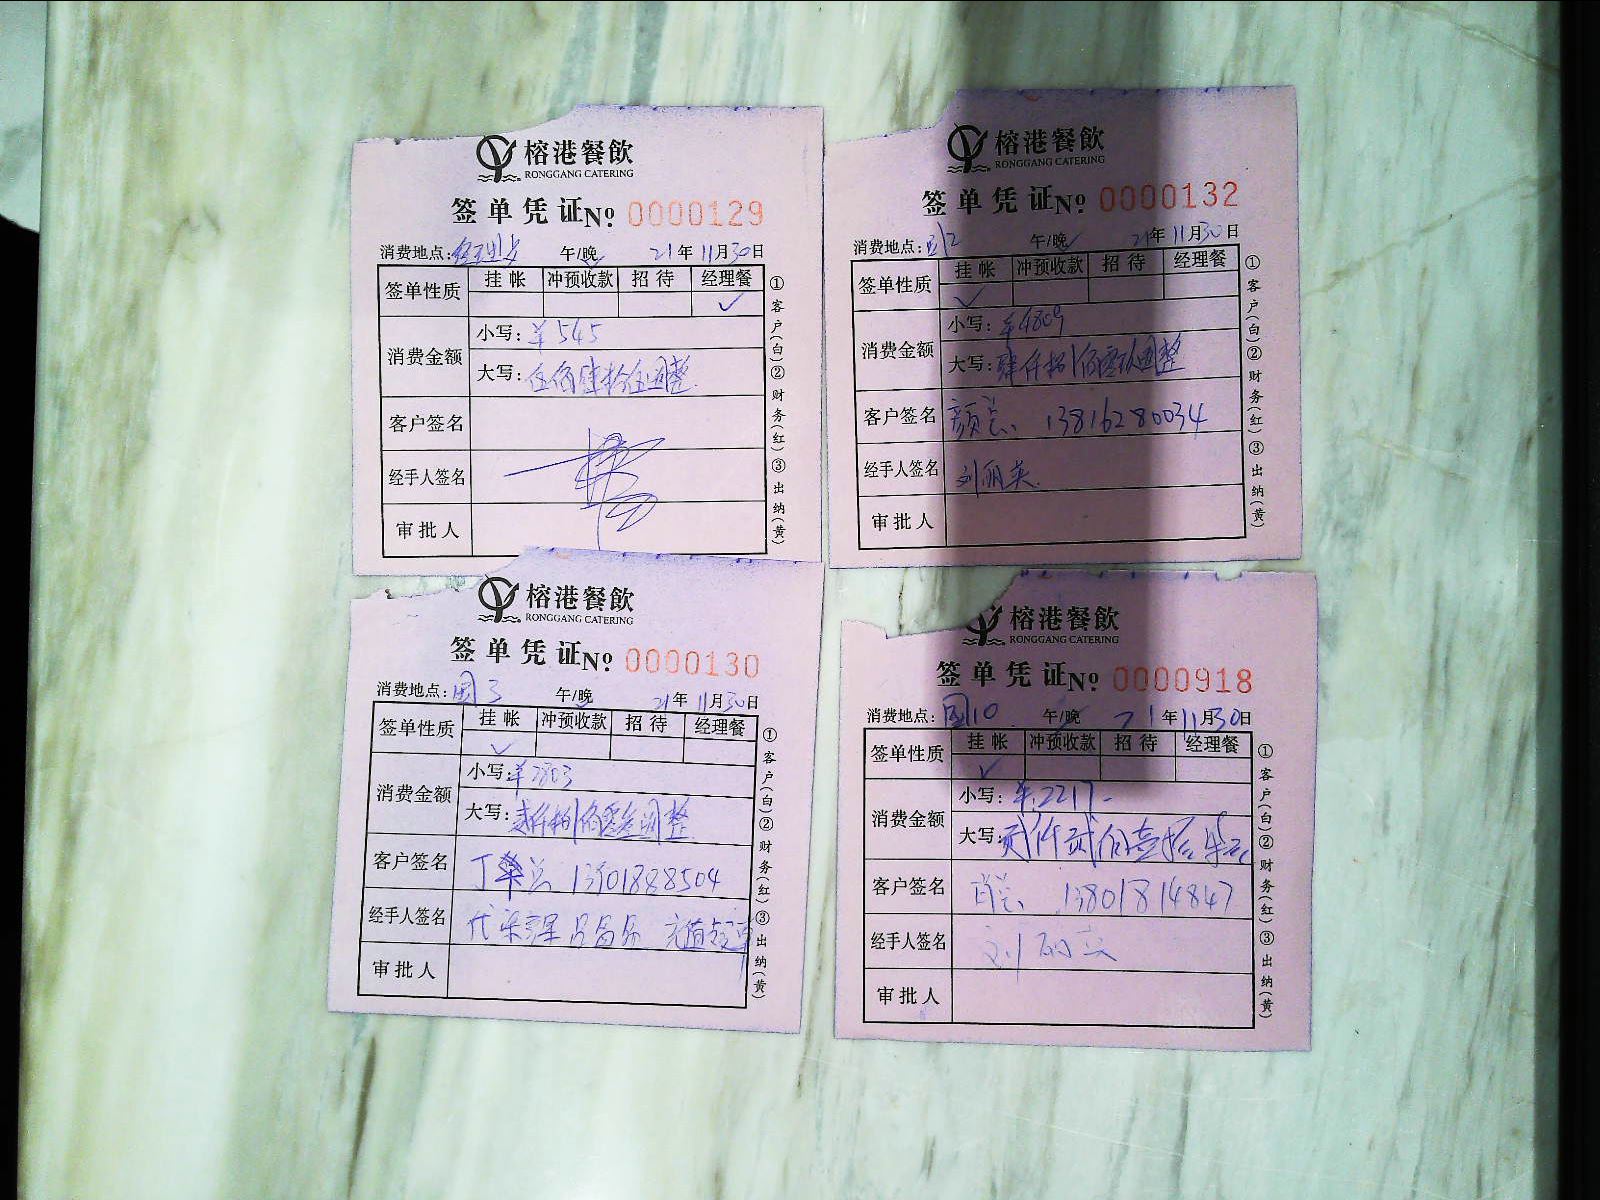 榕港餐飲
RONGGANG CATERING
签单凭证 No 0000129
消费地点: 午/晚 21年11月30日
签单性质 挂帐 冲预收款 招待 经理餐
✓
消费金额 小写: ¥545
大写: 伍佰肆拾伍圆整
客户签名
经手人签名
审批人
①客户(白)②财务(红)③出纳(黄)
榕港餐飲
RONGGANG CATERING
签单凭证 No 0000132
消费地点: 午/晚✓ 21年11月30日
签单性质 挂帐 冲预收款 招待 经理餐
✓
消费金额 小写: ¥4809
大写: 肆仟捌佰零玖圆整
客户签名 颜总、13816280034
经手人签名 刘丽英
审批人
①客户(白)②财务(红)③出纳(黄)
榕港餐飲
RONGGANG CATERING
签单凭证 No 0000130
消费地点: 国3 午/晚 21年11月30日
签单性质 挂帐 冲预收款 招待 经理餐
✓
消费金额 小写: ¥2803
大写: 贰仟捌佰零叁圆整
客户签名 总 13901888504
经手人签名
审批人
①客户(白)②财务(红)③出纳(黄)
榕港餐飲
RONGGANG CATERING
签单凭证 No 0000918
消费地点: 国10 午/晚 21年11月30日
签单性质 挂帐 冲预收款 招待 经理餐
✓
消费金额 小写: ¥2217-
大写: 贰仟贰佰壹拾柒元
客户签名 肖总、13801814847
经手人签名 刘丽英
审批人
①客户(白)②财务(红)③出纳(黄)